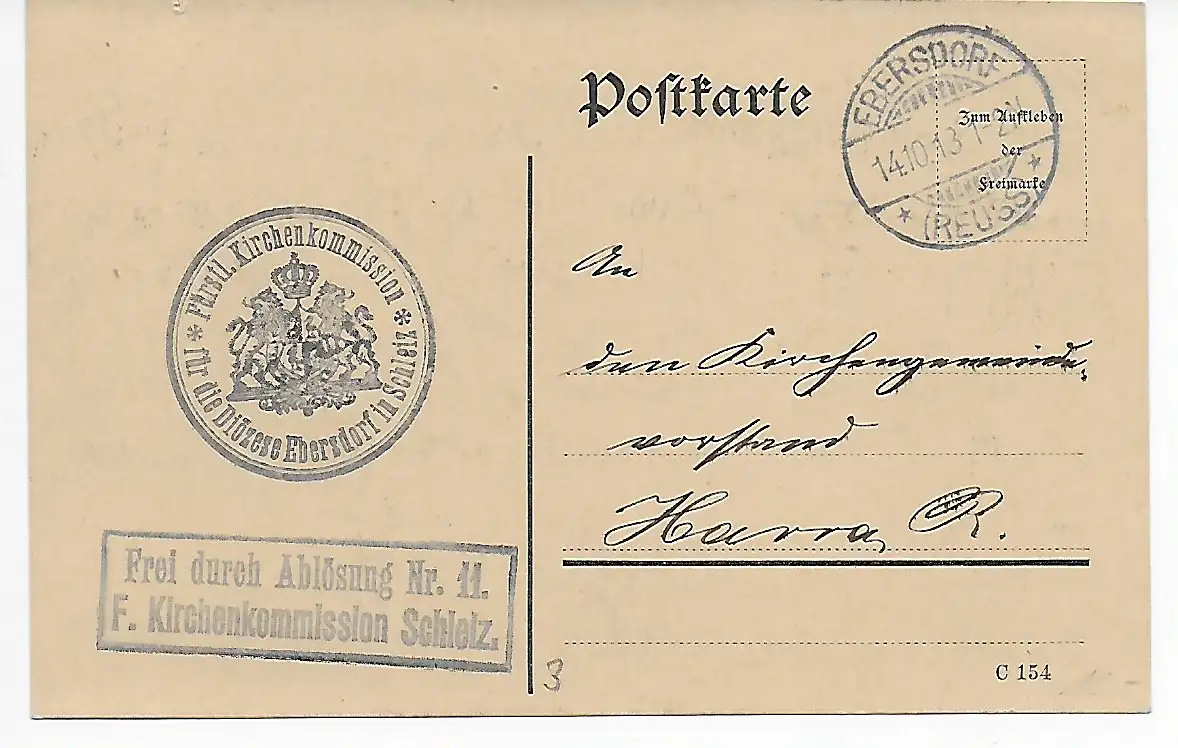 Postkarte
EBERSDORF
14.10.13 1-2N
* (REUSS) *
Zum Aufkleben
der
Freimarke
* Fürstl. Kirchenkommission *
für die Diözese Ebersdorf in Schleiz
An
den Kirchengemeinde-
vorstand
Harra, R.
Frei durch Ablösung Nr. 11.
F. Kirchenkommission Schleiz.
3
C 154